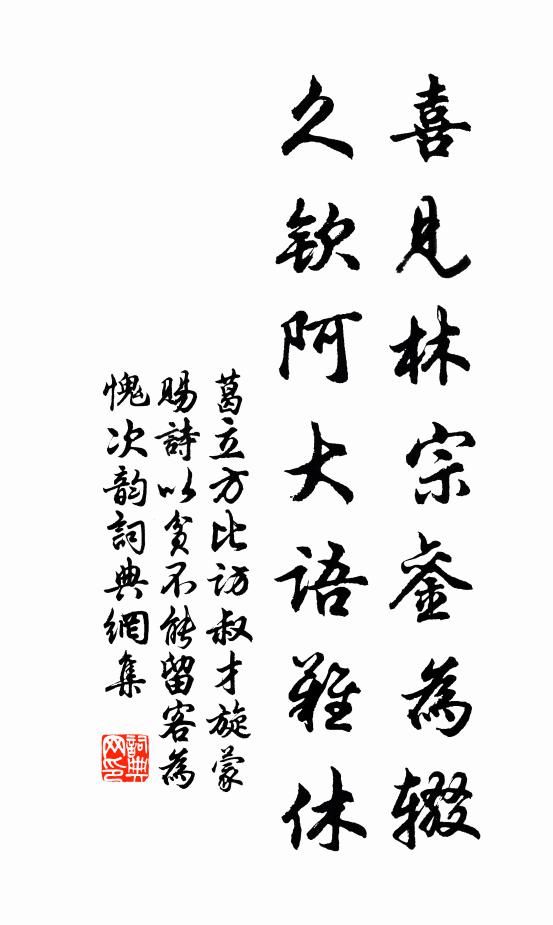 喜見林宗銮為辍
久欽阿大語難休
葛立方比訪叔才旋蒙
賜詩以贫不能留客為
愧次韵詞典網集
詞典
网印